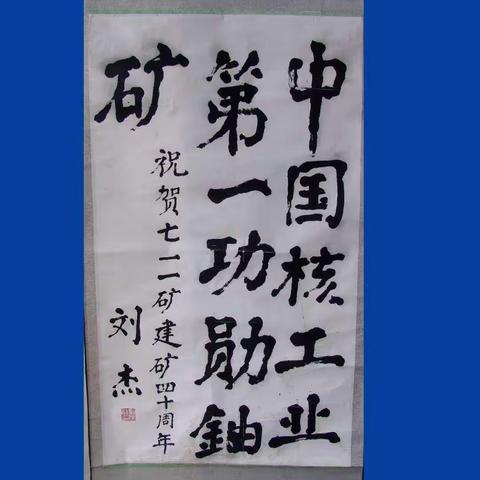 中国核工业
第一功勋铀
矿
祝贺七一一矿建矿四十周年
刘杰